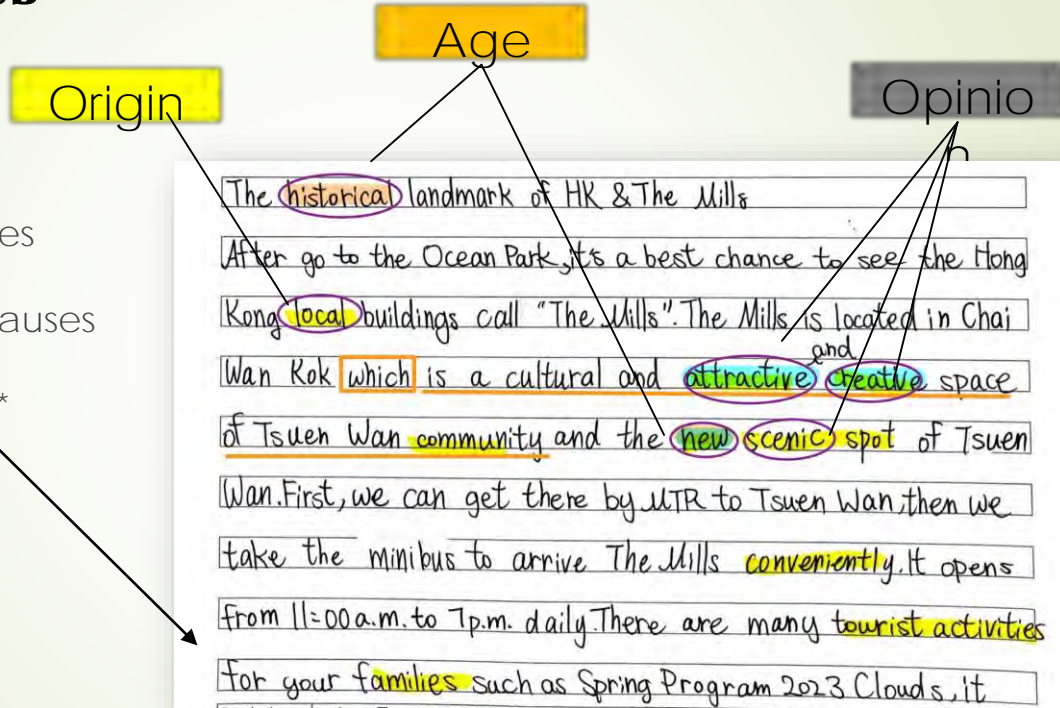 Age
Origin
Opinio
n
es
auses
*
The historical landmark of HK & The Mills
After go to the Ocean Park, it's a best chance to see the Hong
Kong local buildings call "The Mills". The Mills is located in Chai
and
Wan Kok which is a cultural and attractive creative space
of Tsuen Wan community and the new scenic spot of Tsuen
Wan. First, we can get there by MTR to Tsuen Wan, then we
take the minibus to arrive The Mills conveniently. It opens
from 11:00 a.m. to 7p.m. daily. There are many tourist activities
for your families such as Spring Program 2023 Clouds, it